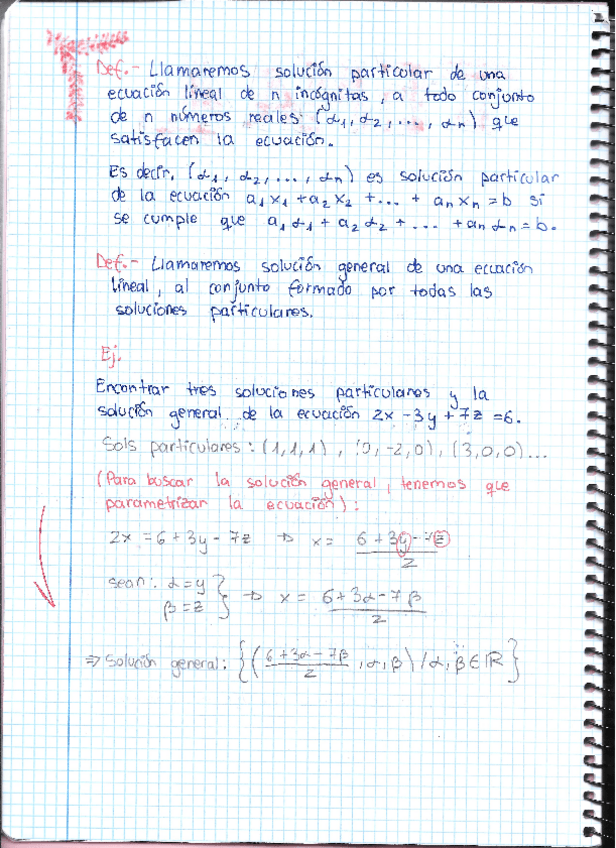 Def.- Llamaremos solución particular de una
ecuación lineal de n incógnitas, a todo conjunto
de n números reales (α₁, α₂, ..., αn) que
satisfacen la ecuación.
Es decir, (α₁, α₂, ..., αn) es solución particular
de la ecuación a₁x₁ + a₂x₂ + ... + anxn = b si
se cumple que a₁α₁ + a₂α₂ + ... + anαn = b.
Def.- Llamaremos solución general de una ecuación
lineal, al conjunto formado por todas las
soluciones particulares.
Ej.
Encontrar tres soluciones particulares y la
solución general de la ecuación 2x - 3y + 7z = 6.
Sols particulares: (1,1,1), (0,-2,0), (3,0,0)...
(Para buscar la solución general, tenemos que
parametrizar la ecuación):
2x = 6 + 3y - 7z ⇒ x = (6 + 3y - 7z)/2
sean: α = y
β = z } ⇒ x = (6 + 3α - 7β)/2
⇒ Solución general: {((6 + 3α - 7β)/2, α, β) / α, β ∈ ℝ}